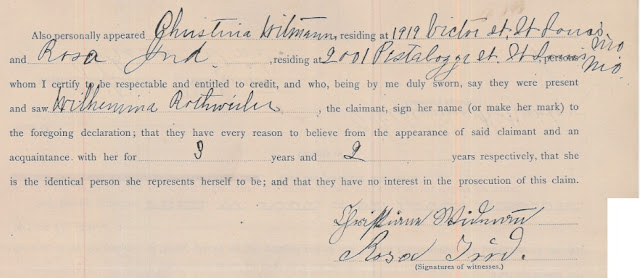 Also personally appeared Christina Widmann, residing at 1919 Victor st. St Louis Mo
and Rosa Jud, residing at 2001 Pestalozzi st. St Louis Mo. persons
whom I certify to be respectable and entitled to credit, and who, being by me duly sworn, say they were present
and saw Wilhemina Rothweiler, the claimant, sign her name (or make her mark) to
the foregoing declaration; that they have every reason to believe from the appearance of said claimant and an
acquaintance with her for 9 years and 2 years respectively, that she
is the identical person she represents herself to be; and that they have no interest in the prosecution of this claim.
Christiane Widmann
Rosa Jud.
(Signatures of witnesses.)